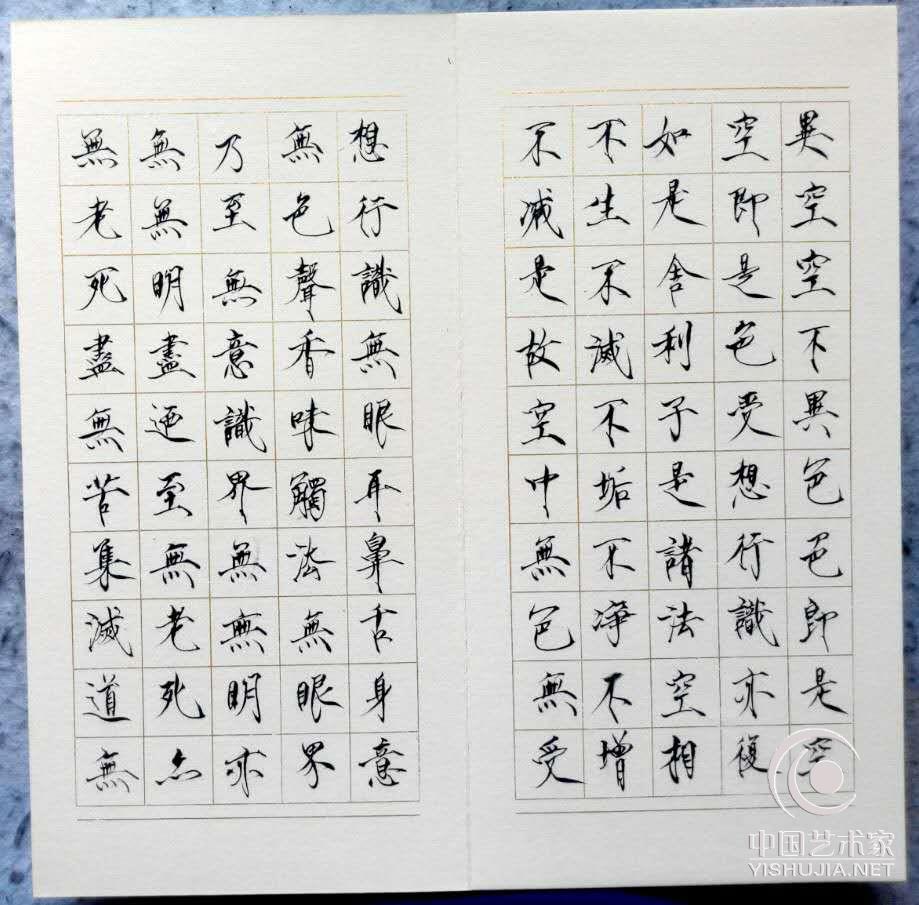 異空空不異色色即是空
空即是色受想行識亦復
如是舍利子是諸法空相
不生不滅不垢不淨不增
不減是故空中無色無受
想行識無眼耳鼻舌身意
無色聲香味觸法無眼界
乃至無意識界無無明亦
無無明盡迺至無老死亦
無老死盡無苦集滅道無
中国艺术家
YISHUJIA.NET